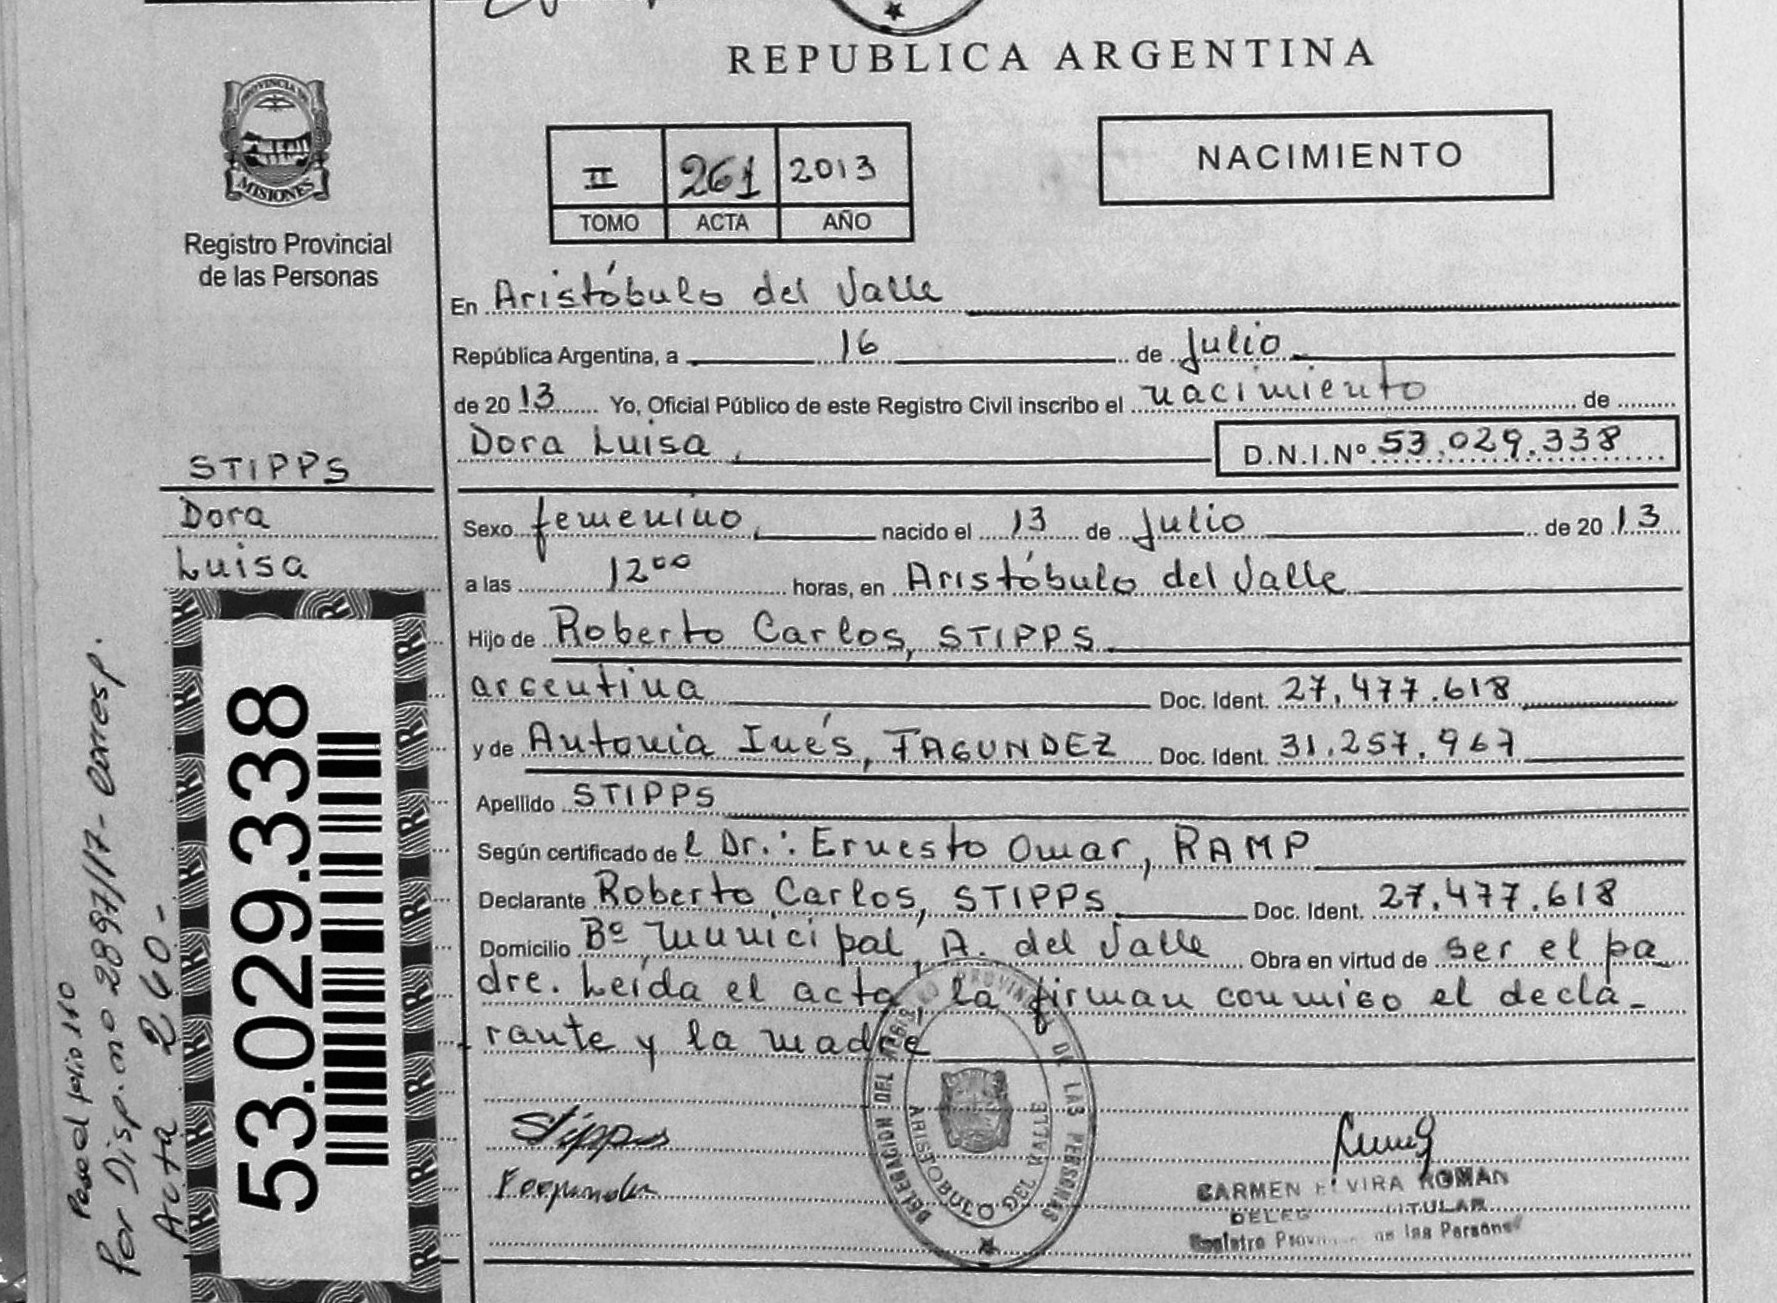 REPUBLICA ARGENTINA
PROVINCIA DE
MISIONES
Registro Provincial
de las Personas
II 261 2013
TOMO ACTA AÑO
NACIMIENTO
En Aristóbulo del Valle
República Argentina, a 16 de Julio
de 2013 Yo, Oficial Público de este Registro Civil inscribo el nacimiento de
Dora Luisa, D.N.I.Nº 53.029.338
STIPPS
Dora
Luisa
Sexo femenino, nacido el 13 de Julio de 2013
a las 12⁰⁰ horas, en Aristóbulo del Valle
Hijo de Roberto Carlos, STIPPS
argentina Doc. Ident. 27.477.618
y de Antonia Inés, FAGUNDEZ Doc. Ident. 31.257.967
Apellido STIPPS
Según certificado del Dr.: Ernesto Omar, RAMP
Declarante Roberto Carlos, STIPPS Doc. Ident. 27.477.618
Domicilio Bº Municipal, A. del Valle Obra en virtud de ser el pa-
dre. Leída el acta, la firman conmigo el decla-
rante y la madre
53.029.338
Pasa al folio 110
Por Disp. nº 2897/17- corresp.
Acta 260-
Stipps
DELEGACION DEL REGISTRO PROVINCIAL DE LAS PERSONAS
ARISTOBULO DEL VALLE
CARMEN ELVIRA ROMAN
TITULAR
Registro de las Personas